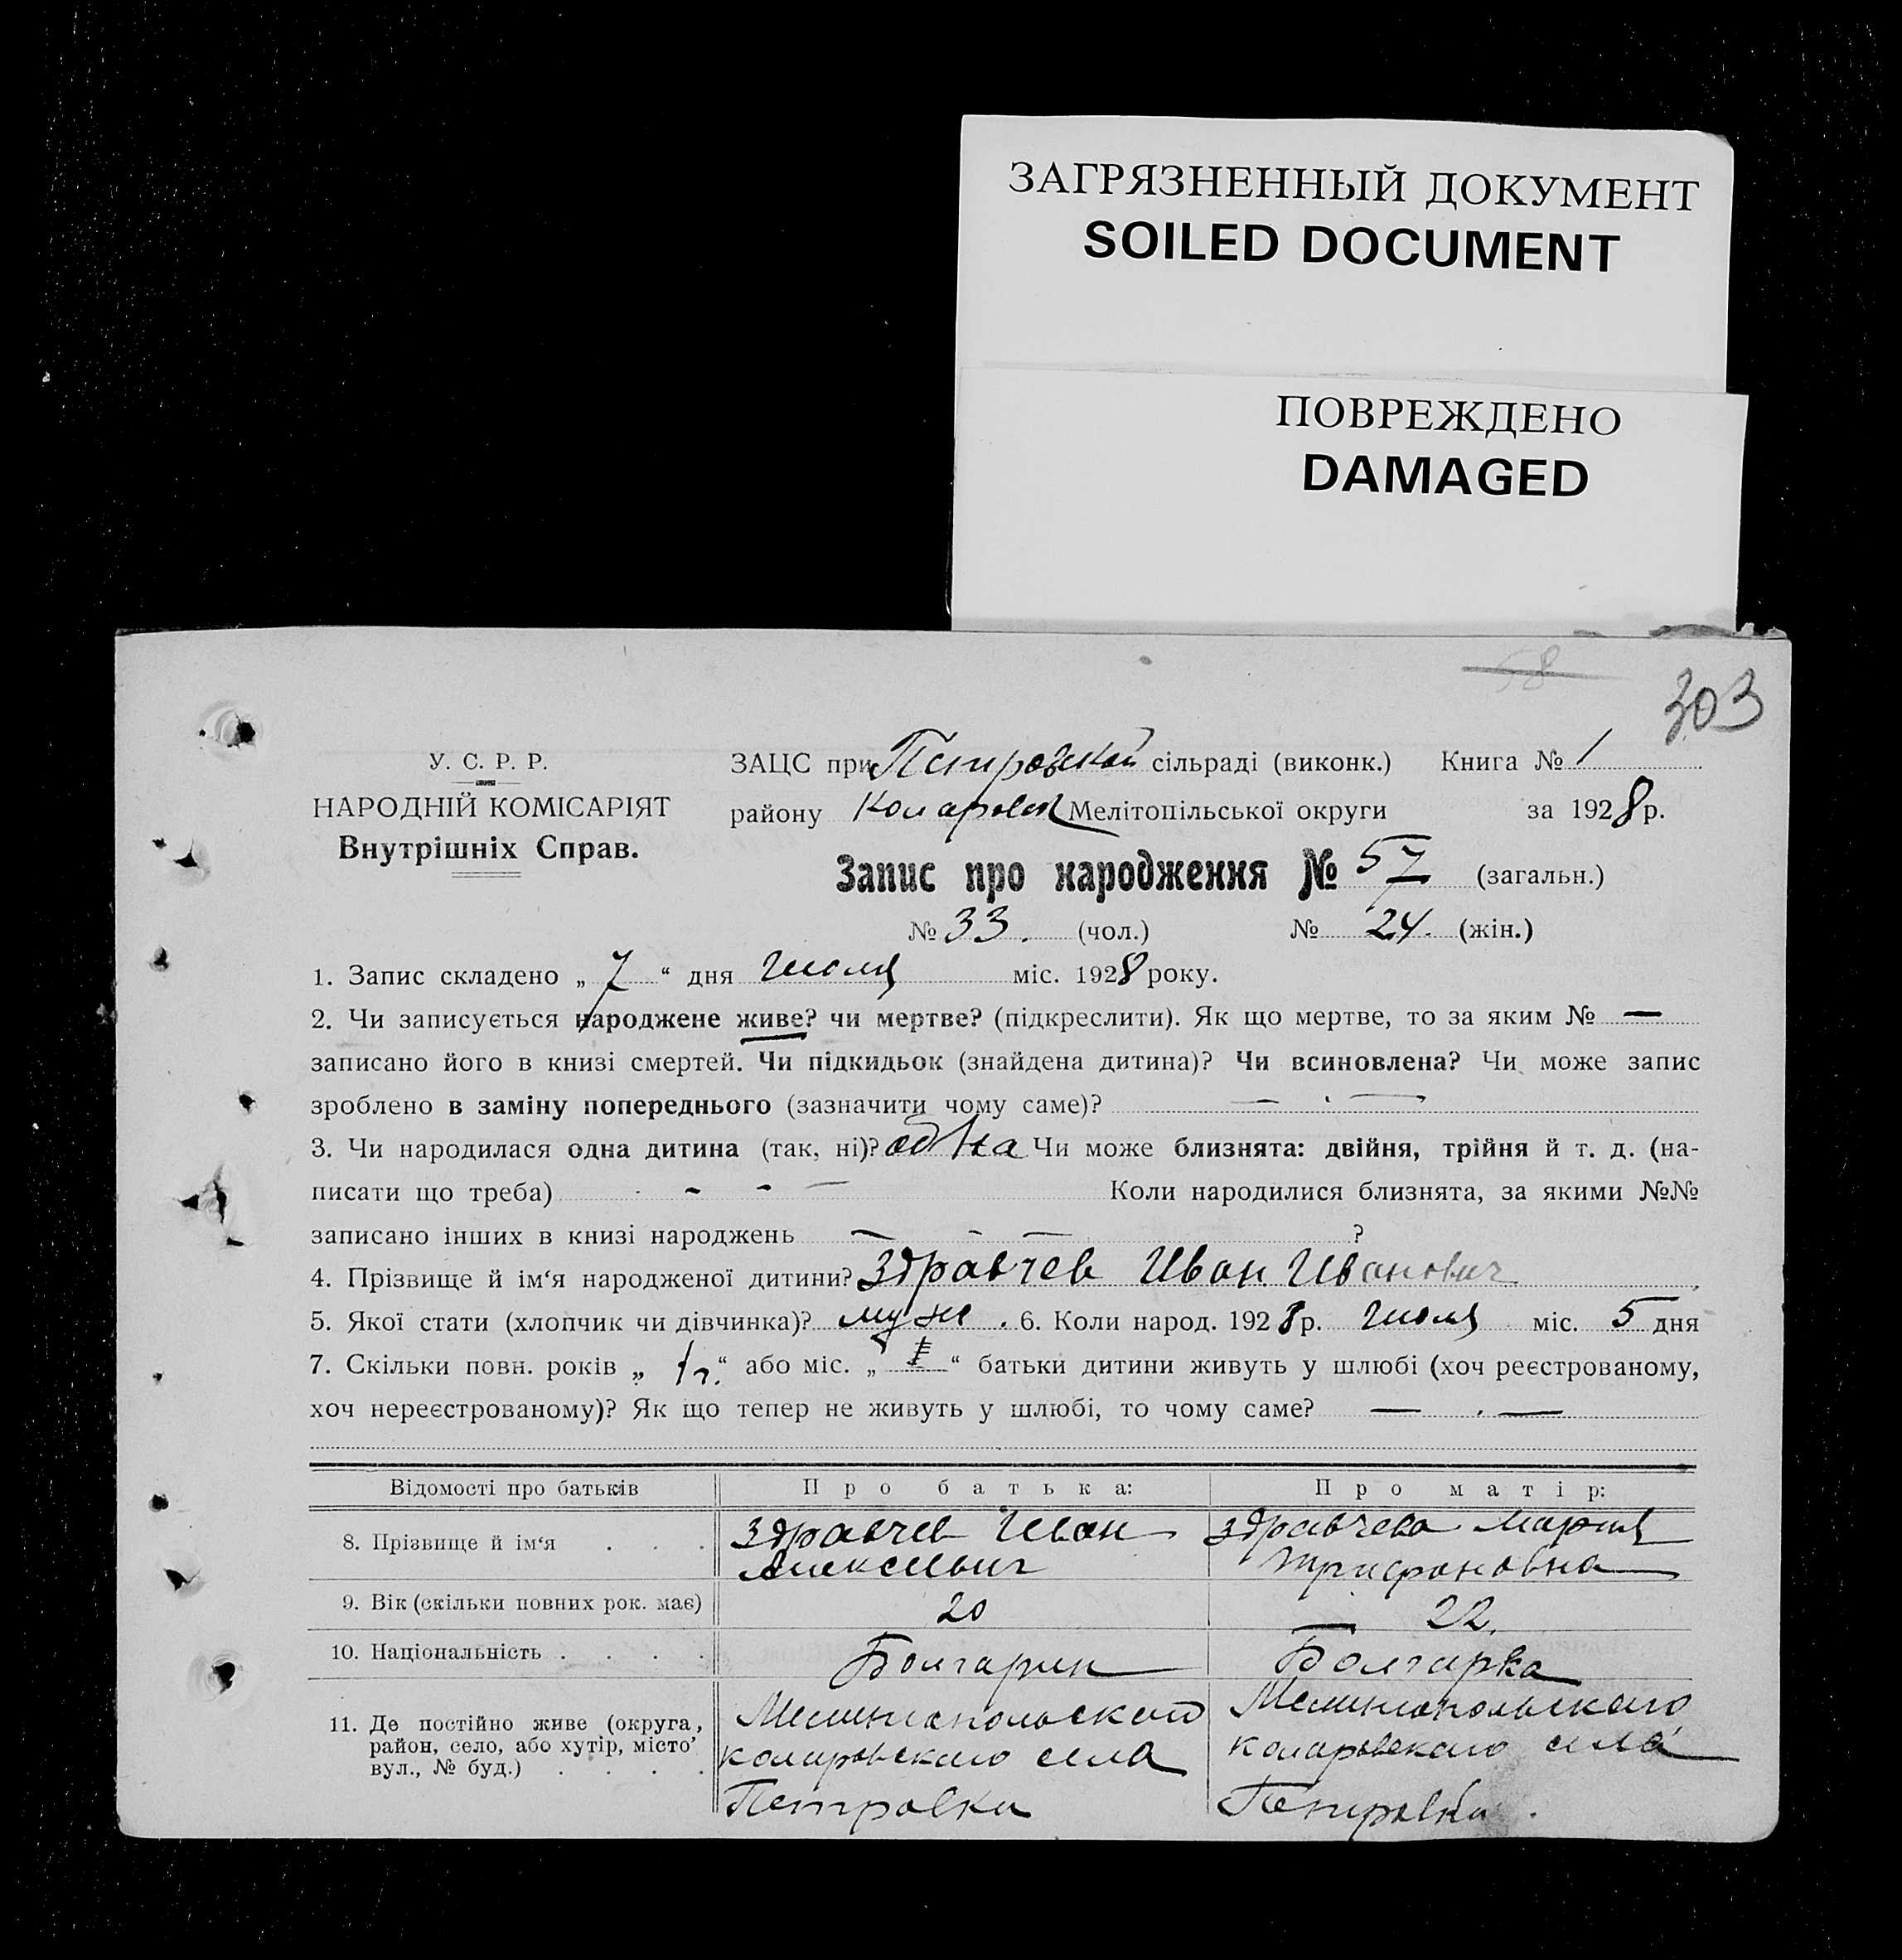 ЗАГРЯЗНЕННЫЙ ДОКУМЕНТ
SOILED DOCUMENT
ПОВРЕЖДЕНО
DAMAGED
58
303
У. С. Р. Р.
НАРОДНІЙ КОМІСАРІЯТ
Внутрішніх Справ.
ЗАЦС при Петровской сільраді (виконк.) Книга № 1
району Коларовск Мелітопільської округи за 1928 р.
Запис про народження № 57 (загальн.)
№ 33. (чол.) № 24. (жін.)
1. Запис складено „ 7 “ дня Июля міс. 1928 року.
2. Чи записується народжене живе? чи мертве? (підкреслити). Як що мертве, то за яким № —
записано його в книзі смертей. Чи підкидьок (знайдена дитина)? Чи всиновлена? Чи може запис
зроблено в заміну попереднього (зазначити чому саме)? — . —
3. Чи народилася одна дитина (так, ні)? одна Чи може близнята: двійня, трійня й т. д. (на-
писати що треба) - - — Коли народилися близнята, за якими №№
записано інших в книзі народжень — - — ?
4. Прізвище й ім‘я народженої дитини? Здравчев Иван Иванович
5. Якої стати (хлопчик чи дівчинка)? муж . 6. Коли народ. 1928 р. Июля міс. 5 дня
7. Скільки повн. років „ 1 г. “ або міс. „ “ батьки дитини живуть у шлюбі (хоч реєстрованому,
хоч нереєстрованому)? Як що тепер не живуть у шлюбі, то чому саме? — . —
Відомості про батьків Про батька: Про матір:
8. Прізвище й ім‘я . . . Здравчев Иван Здравчева Мария
Алексеевич Трифоновна
9. Вік (скільки повних рок. має) 20 — 22.
10. Національність . . . . Болгарин Болгарка
11. Де постійно живе (округа, район, село, або хутір, місто’ вул., № буд.) . . . .
Мелитопольского Мелитопольского
коларовского села коларовского села
Петровки Петровки .